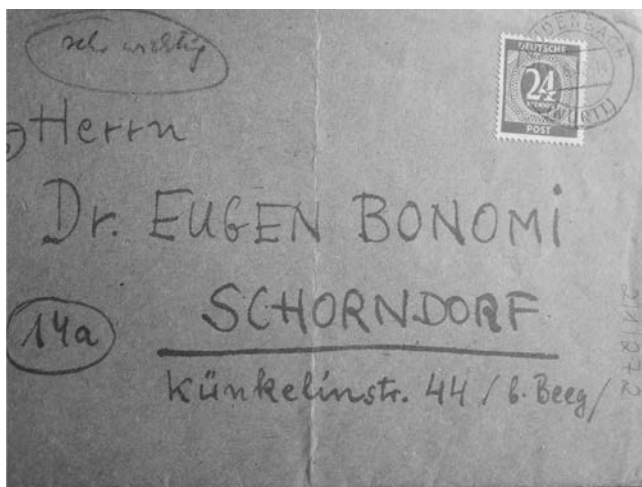 sehr wichtig
DEUTSCHE
24
PFENNIG
POST
(WÜRTT)
Herrn
Dr. EUGEN BONOMI
14a
SCHORNDORF
Künkelinstr. 44 / b. Beeg/